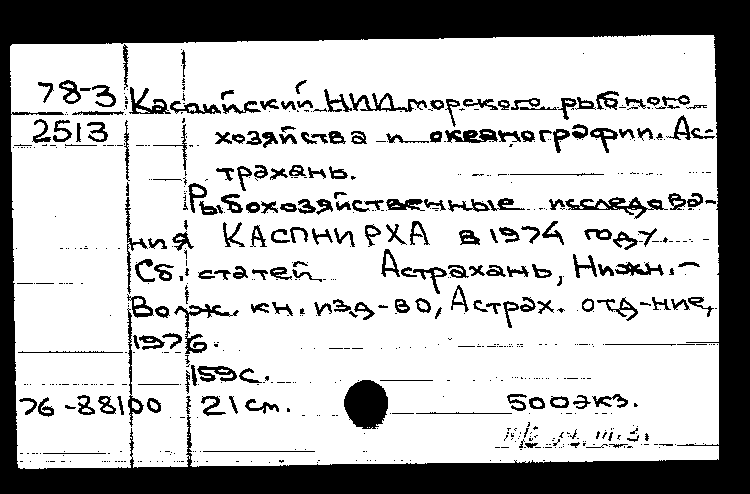 78-3 Каспийский НИИ морского рыбного
2513 хозяйства и океанографии. Ас-
трахань.
Рыбохозяйственные исследова-
ния КАСПНИРХА в 1974 году.
Сб. статей Астрахань, Нижн.-
Волж. кн. изд-во, Астрах. отд-ние,
1976.
159с.
76-88100 21см. 500экз.